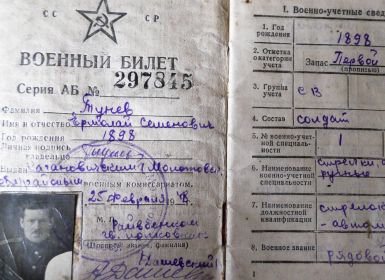 СС СР
ВОЕННЫЙ БИЛЕТ
Серия АБ № 297845
Фамилия Тунев
Имя и отчество Ермолай Семенович
Год рождения 1898
Личная подпись
владельца
Выдан
военным комиссариатом.
25 февраля
М.
(Воинское звание, фамилия)
I. Военно-учетные свед
1. Год
рождения 1898
2. Отметка
о категории
учета Запас Первой
(прописью)
3. Группа
учета СВ
4. Состав солдат
5. № военно-учет-
ной специаль-
ности 1
6. Наименование
военно-учетной
специальности стрелки
ручные
7. Наименование
должностной
квалификации стрелок
автом
8. Военное звание рядово